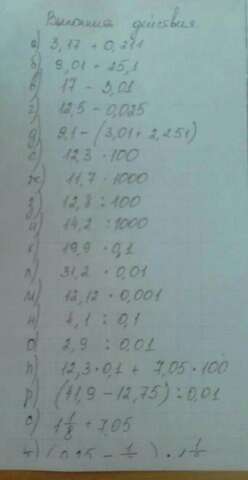 Выполни действия
а) 3,17 + 0,211
б) 9,01 - 25,1
в) 17 - 3,01
г) 12,5 - 0,025
д) 9,1 - (3,01 + 2,251)
е) 12,3 · 100
ж) 11,7 · 1000
з) 12,8 : 100
и) 14,2 : 1000
к) 19,9 · 0,1
л) 31,2 · 0,01
м) 12,12 · 0,001
н) 4,1 : 0,1
о) 2,9 : 0,01
п) 12,3 · 0,1 + 7,05 · 100
р) (41,9 - 12,75) : 0,01
с) 1 1/8 + 7,05